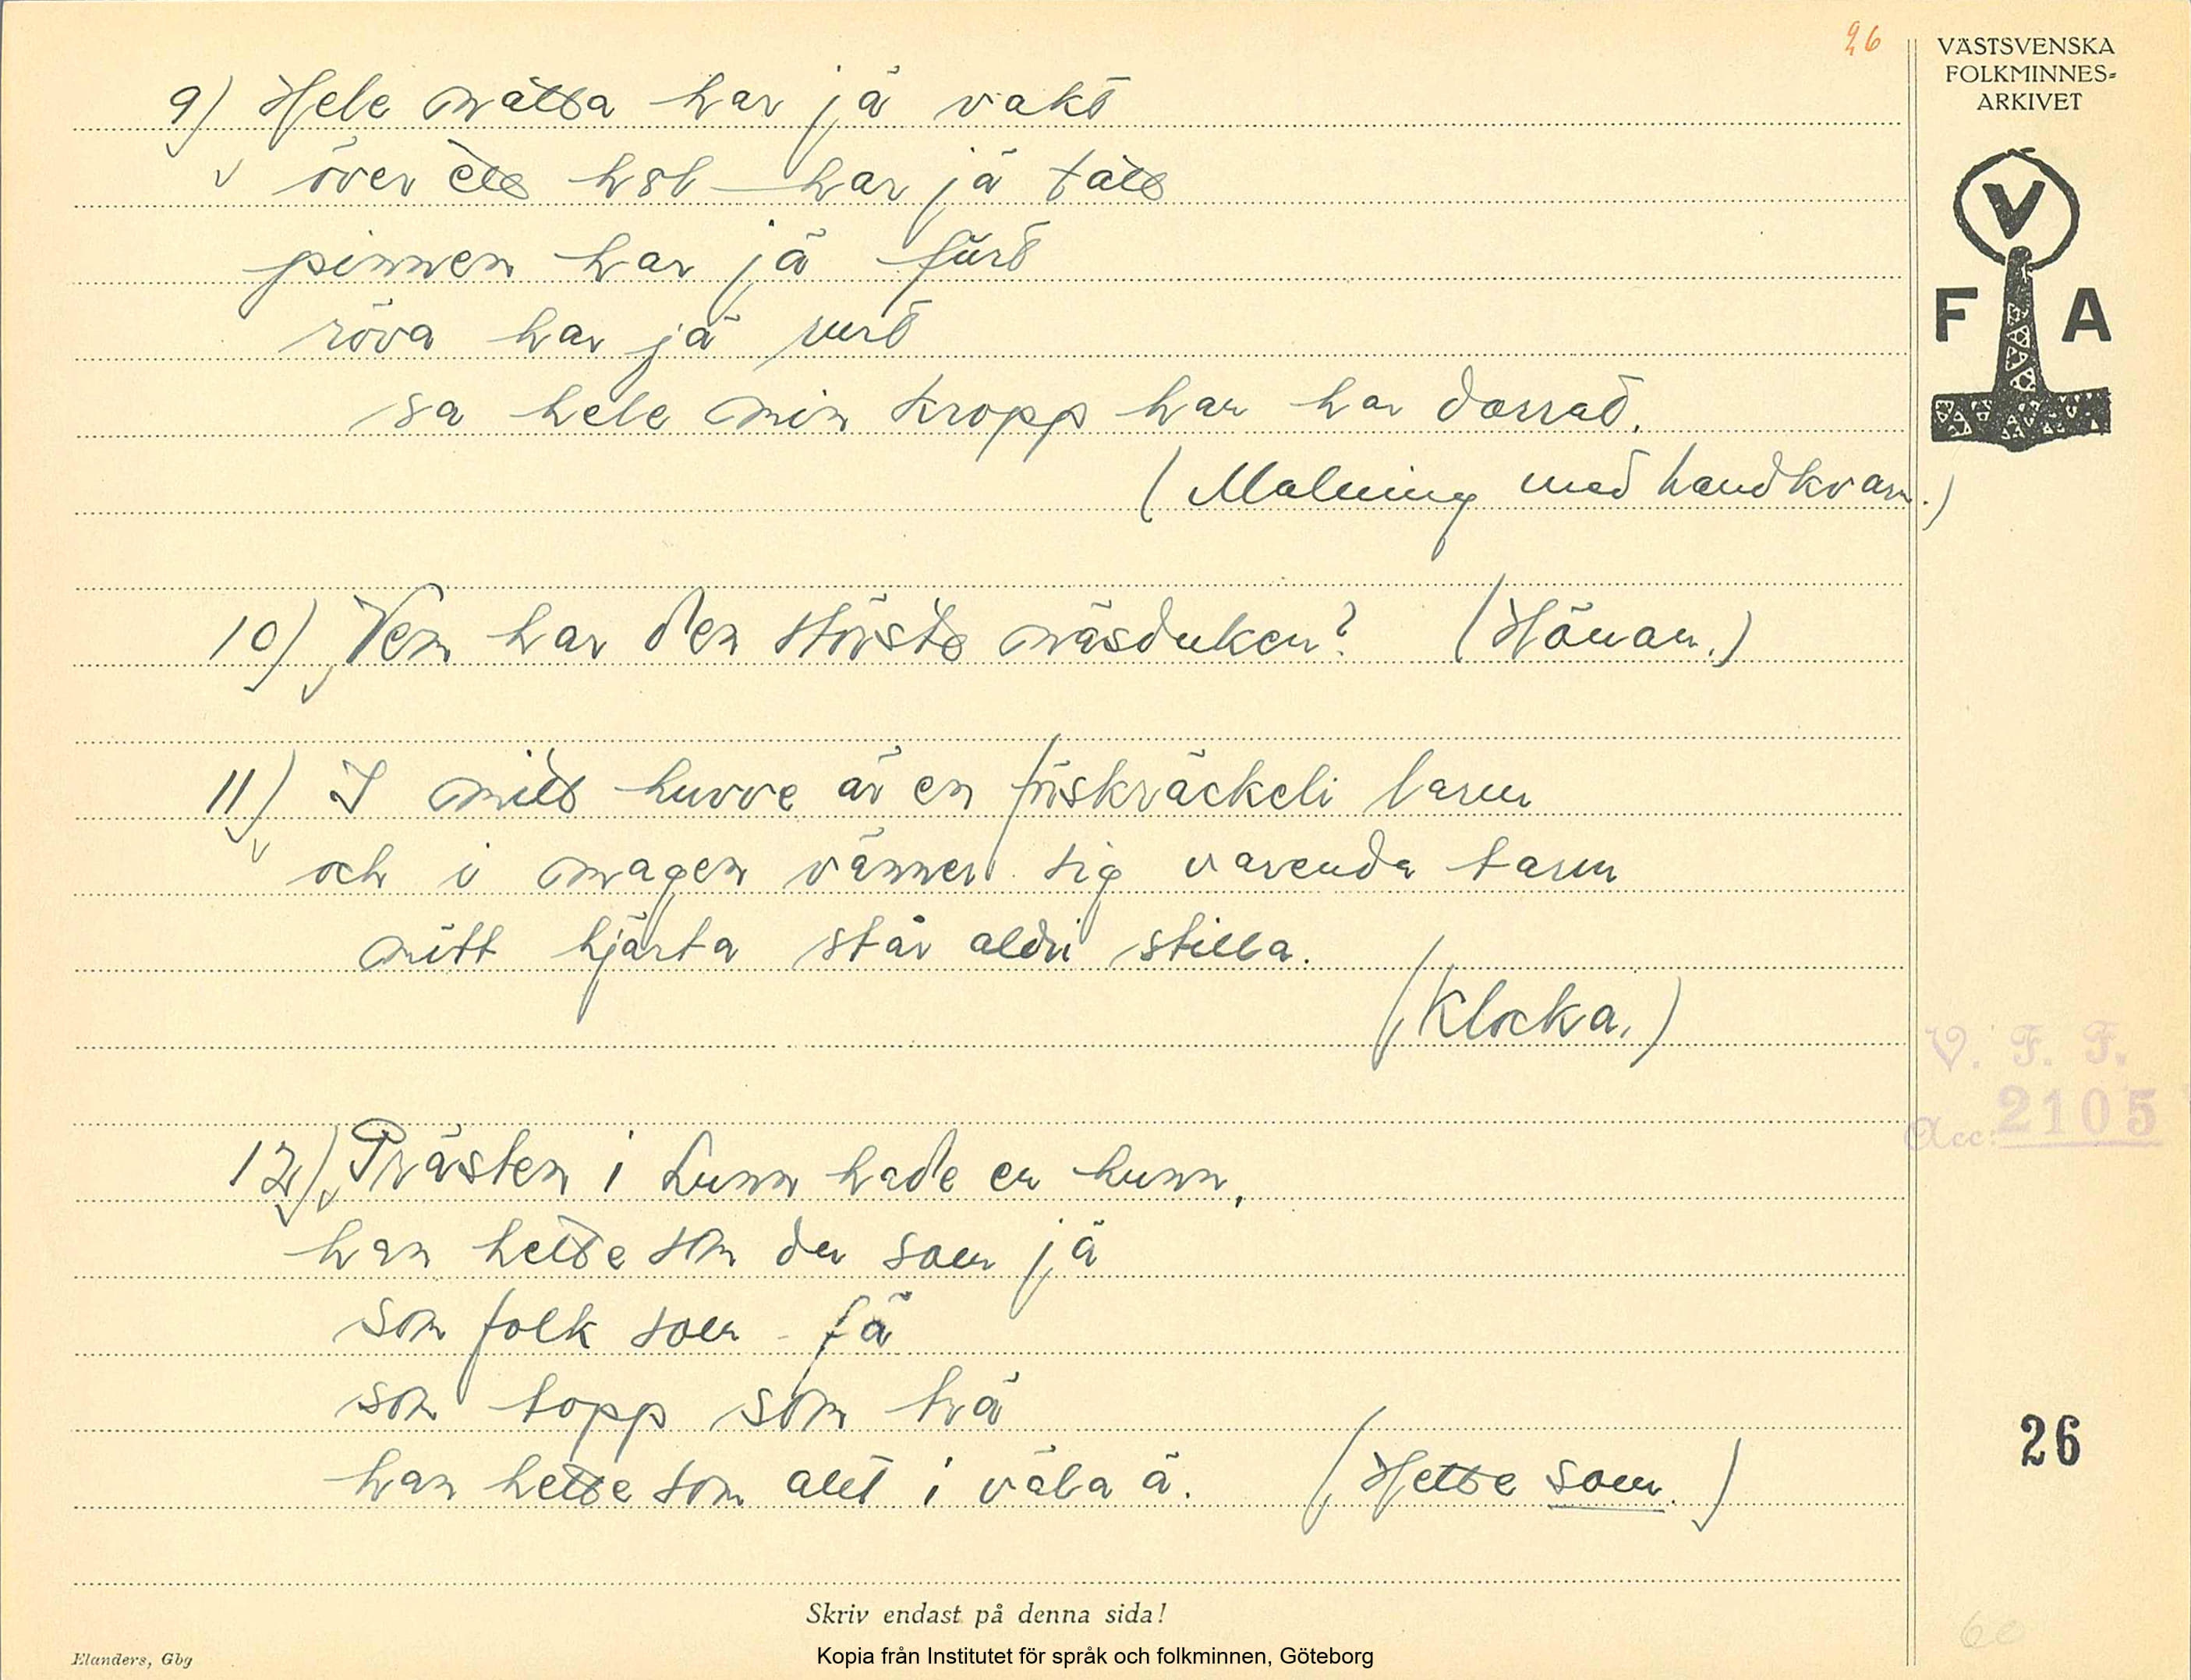 26
VÄSTSVENSKA
FOLKMINNES-
ARKIVET
V
F A
9) Hele nätta har jä vakt
över ett hål har jä tätt
pinnen har jä fürt
röva har jä rurt
sa hele min kropp har har darrad.
(Malning med handkvarn.)
10) Vem har den störste näsduken? (Hönan.)
11) I mitt huvve är en förskräckeli larm
och i magen vänner sig varenda tarm
mitt hjärta står aldri stilla.
(Klocka.)
12) Prästen i Lunn hade en hunn,
han hette som du som jä
som folk som fä
som topp som trä
han hette som allt i väla ä. (Hette som.)
V. F. F.
Acc: 2105
26
60
Skriv endast på denna sida!
Elanders, Gbg
Kopia från Institutet för språk och folkminnen, Göteborg